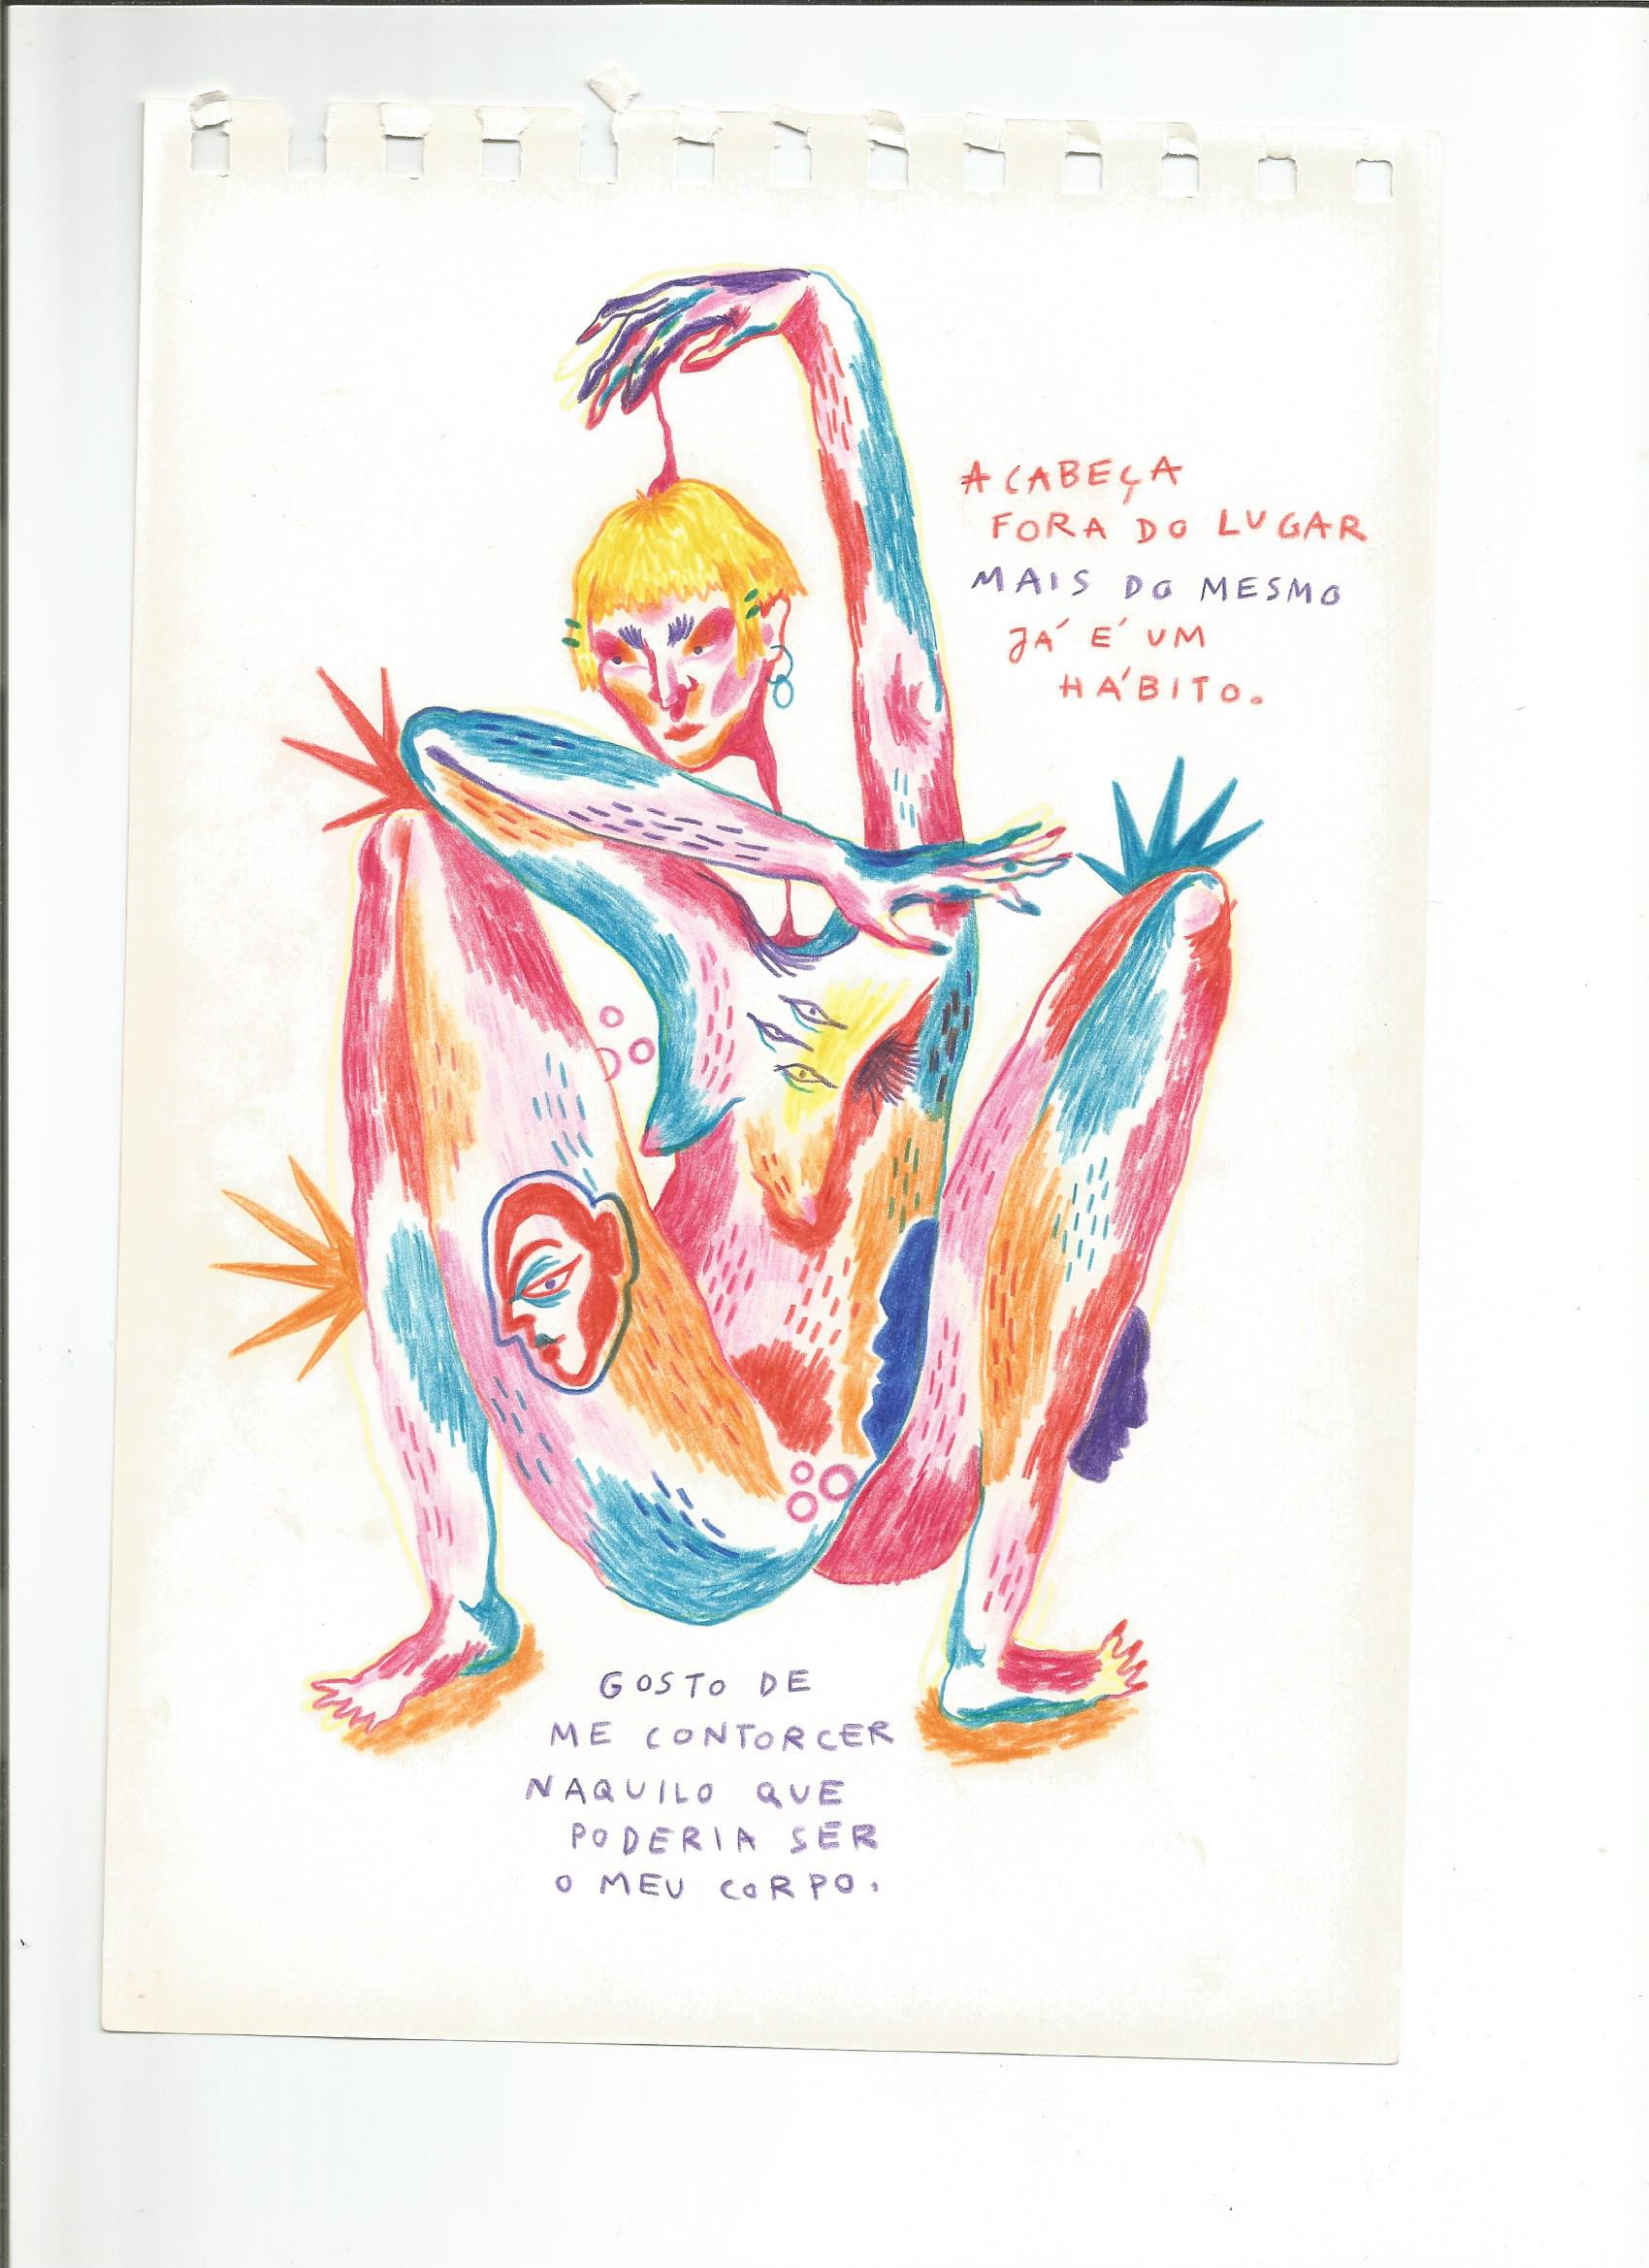 A CABEÇA
FORA DO LUGAR
MAIS DO MESMO
JÁ É UM
HÁBITO.
GOSTO DE
ME CONTORCER
NAQUILO QUE
PODERIA SER
O MEU CORPO.